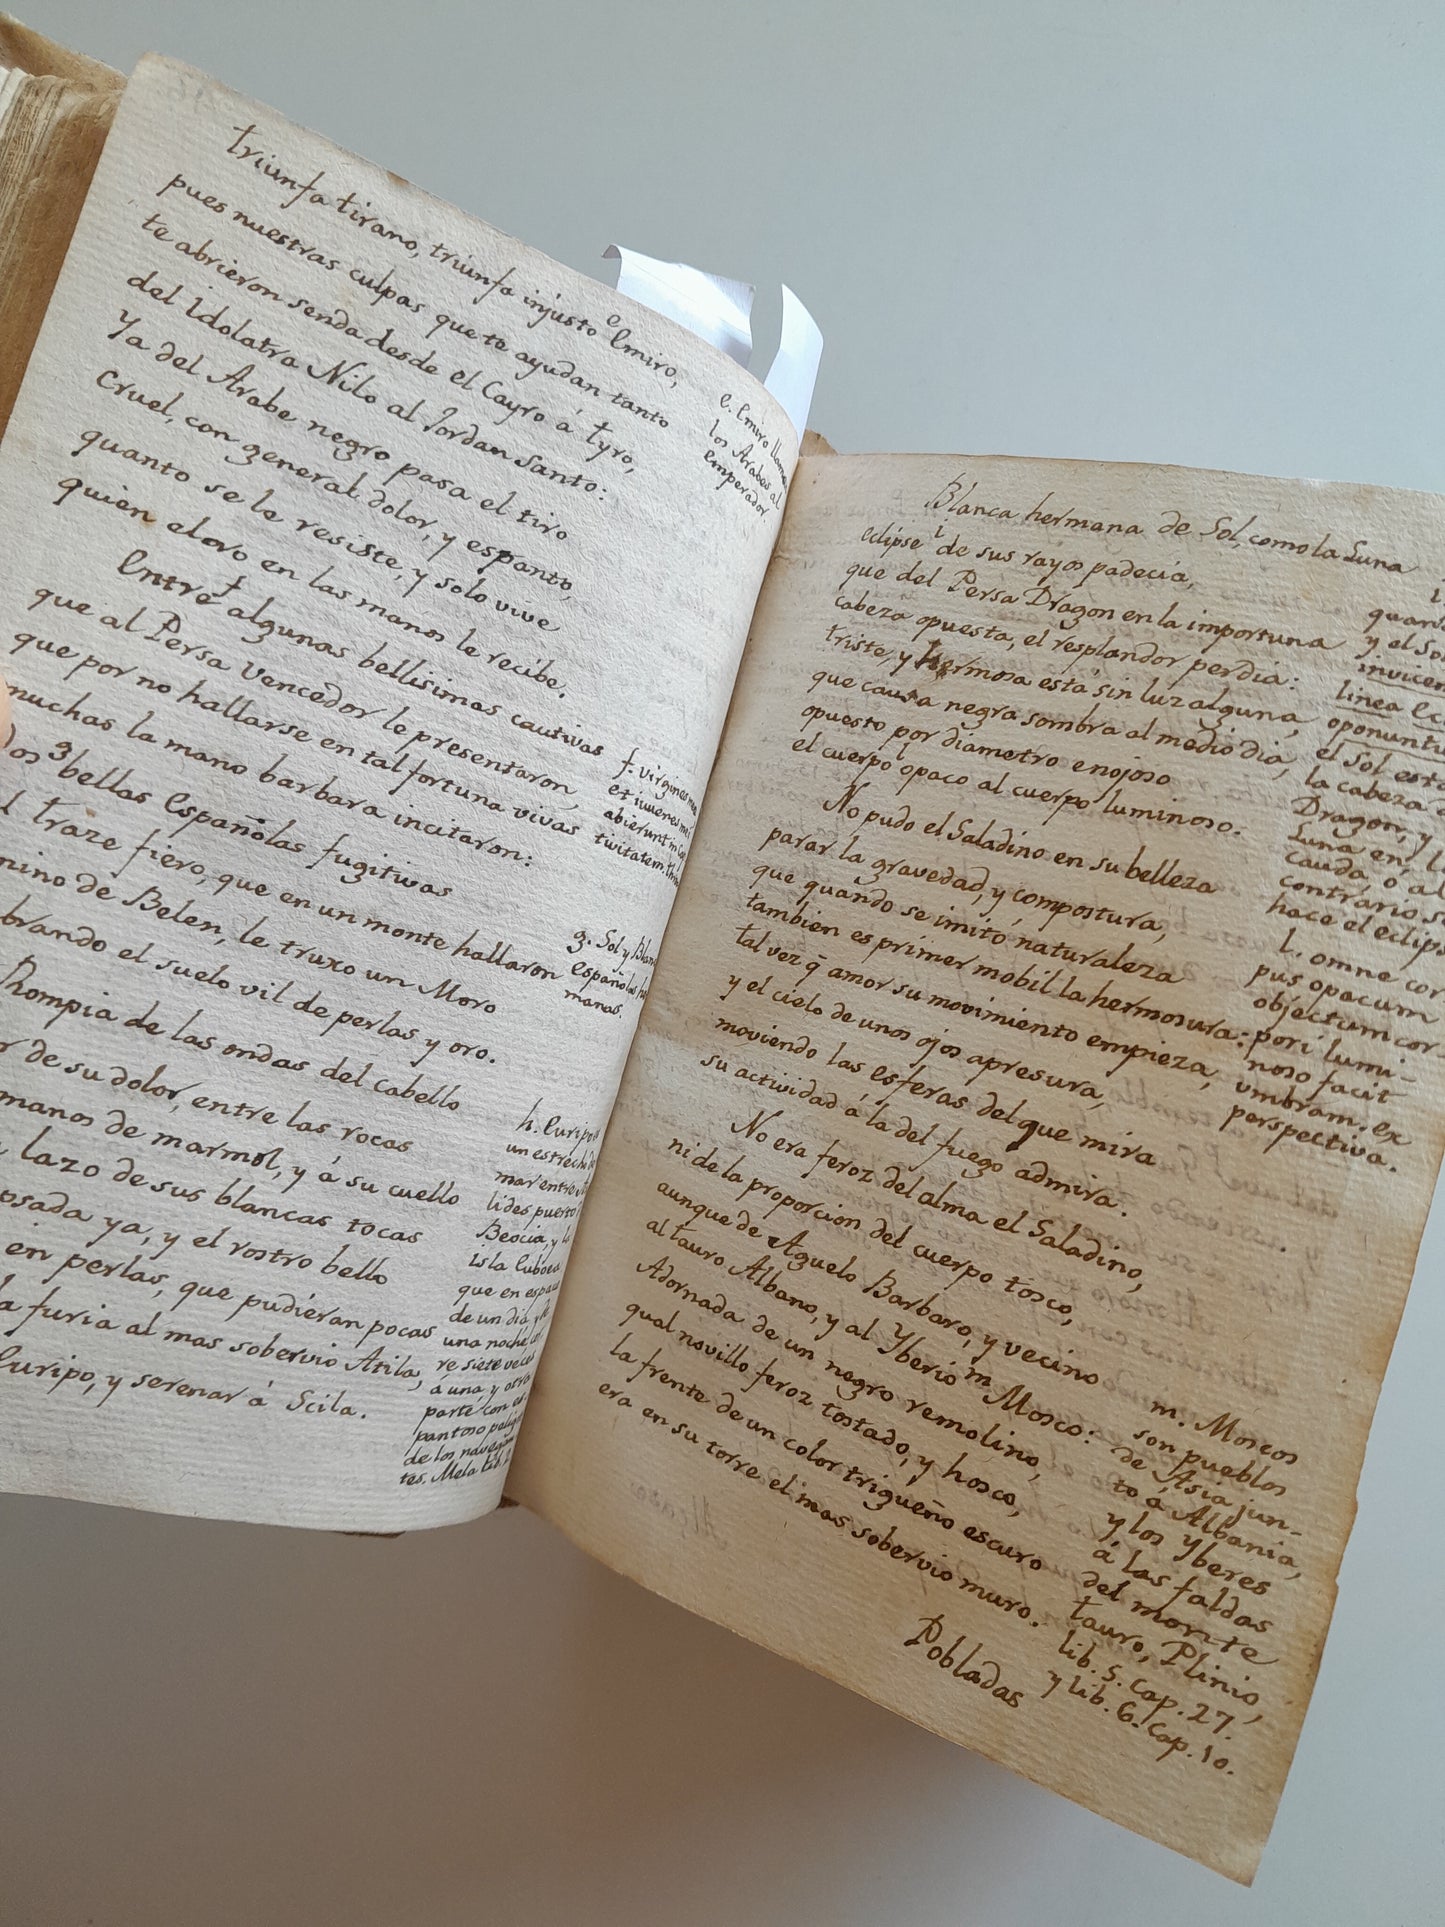 triunfa tirano, triunfa injusto Emiro,
pues nuestras culpas que te ayudan tanto
te abrieron senda desde el Cayro á Tyro,
del Idolatra Nilo al Jordan Santo:
Ya del Arabe negro pasa el tiro
Cruel, con general dolor, y espanto,
quanto se le resiste, y solo vive
quien el oro en las manos le recibe.
Entre f algunas bellisimas cautivas
que al Persa Vencedor le presentaron,
que por no hallarse en tal fortuna vivas
muchas la mano barbara incitaron:
Dos g bellas Españolas fugitivas
traze fiero, que en un monte hallaron
de Belen, le truxo un Moro
el suelo vil de perlas y oro.
Rompia de las ondas del cabello
de su dolor, entre las rocas
manos de marmol, y á su cuello
lazo de sus blancas tocas
ya, y el rostro bello
en perlas, que pudieran pocas
la furia al mas sobervio Atila,
Euripo, y serenar á Scila.
e. Emiro llaman
los Arabes al
emperador
f. virgines
et iuvenes mei
abierunt in
tivitatem.
g. Sol y Blan
Españolas her
manas.
h. Euripo
un estrecho de
mar entre
lides puerto
Beocia, y la
isla Euboea
que en espacio
de un dia, y
una noche
re siete veces
á una, y otra
parte con es
pantoso
de los navegan
tes. Mela lib.
Blanca hermana de Sol, como la Luna
eclipse i de sus rayos padecia,
que del Persa Dragon en la importuna
cabeza opuesta, el resplandor perdia:
triste, y hermosa está sin luz alguna,
que causa negra sombra al medio dia,
opuesto por diametro enojoso
el cuerpo l opaco al cuerpo luminoso.
No pudo el Saladino en su belleza
parar la gravedad, y compostura,
que quando se imitó naturaleza
tambien es primer mobil la hermosura:
tal vez q̃ amor su movimiento empieza,
y el cielo de unos ojos apresura,
moviendo las esferas del que mira
su actividad á la del fuego admira.
No era feroz del alma el Saladino,
ni de la proporcion del cuerpo tosco,
aunque de Aguelo Barbaro, y vecino
al tauro Albano, y al Yberio m Mosco:
Adornada de un negro remolino,
qual novillo feroz tostado, y hosco,
la frente de un color trigueño escuro
era en su torre el mas sobervio muro.
Pobladas
y el So
invicem
linea
oponuntu
el Sol esta
la cabeza
Dragon, y
Luna en
cauda, ó al
contrario
hace el eclips
l. omne cor
pus opacum
objectum cor-
pori lumi-
noso facit
umbram. ex
perspectiva.
m. Moscos
son pueblos
de Asia jun-
to a Albania,
y los Yberes
á las faldas
del monte
tauro, Plinio,
lib. 5. cap. 27.
y lib. 6. cap. 10.